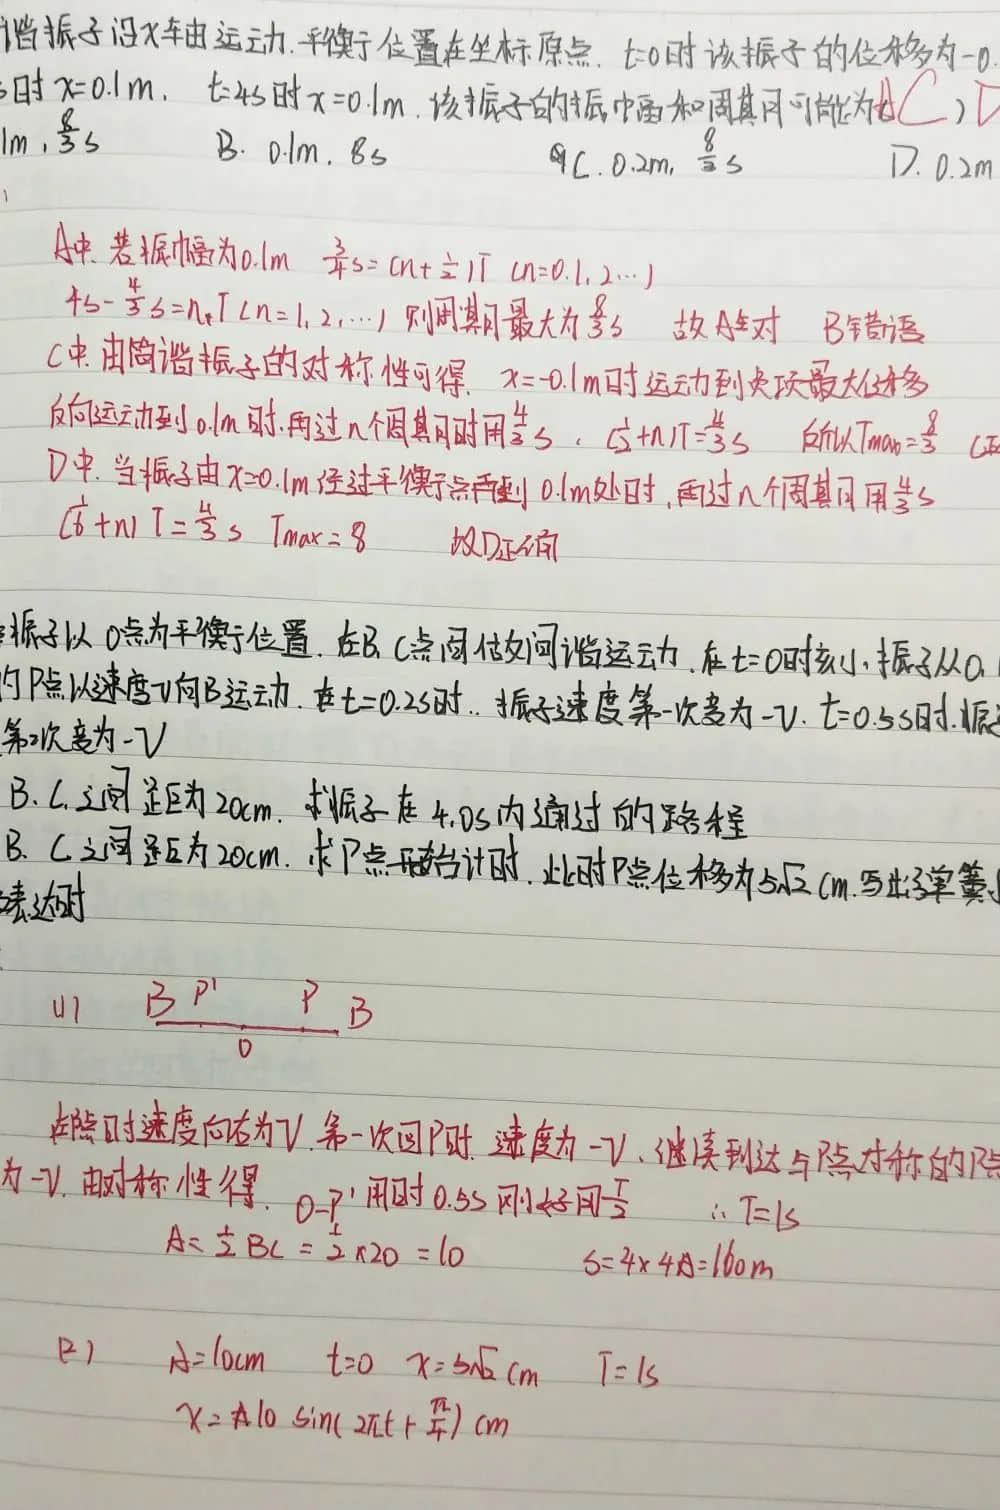 谐振子沿x轴运动.平衡于位置在坐标原点. t=0时该振子的位移为-0.
s时 x=0.1m. t=4s时 x=0.1m. 该振子的振幅和周期可能为(AC)D
1m, 8/3 s B. 0.1m, 8s C. 0.2m, 8/3 s D. 0.2m
A中.若振幅为0.1m 3/4 s=(n+1/2)T (n=0.1,2…)
4s-4/3 s=n,T (n=1,2,…) 则周期最大为8/3 s 故A对 B错误
C中.由简谐振子的对称性可得. x=-0.1m时运动到 最大位移
反向运动到0.1m时.再过n个周期时用4/3 s. (1/2+n)T=4/3 s 所以Tmax=8/3 C正
D中.当振子由x=0.1m经过平衡点再到0.1m处时,再过n个周期用4/3 s
(1/6+n)T=4/3 s Tmax=8 故D正确
振子以O点为平衡于位置.在B.C点间做简谐运动.在t=0时刻.振子从O.
的P点以速度v向B运动.在t=0.2s时..振子速度第一次变为-v. t=0.5s时.振子
第2次变为-v
B.C.之间距为20cm.求振子在4.0s内通过的路程
B.C之间距为20cm.求P点开始计时.此时P点位移为5√2cm.写出弹簧
表达时
(1) B P' P B
O
在P点时速度向右为V.第一次回P时.速度为-V.继续到达与P点对称的P点
为-V.由对称性得. O-P'用时0.5s刚好用T/2 ∴T=1s
A=1/2 BC=1/2×20=10 S=4×4A=160m
(2) A=10cm t=0 x=5√2cm T=1s
x=10 sin(2πt+π/4)cm